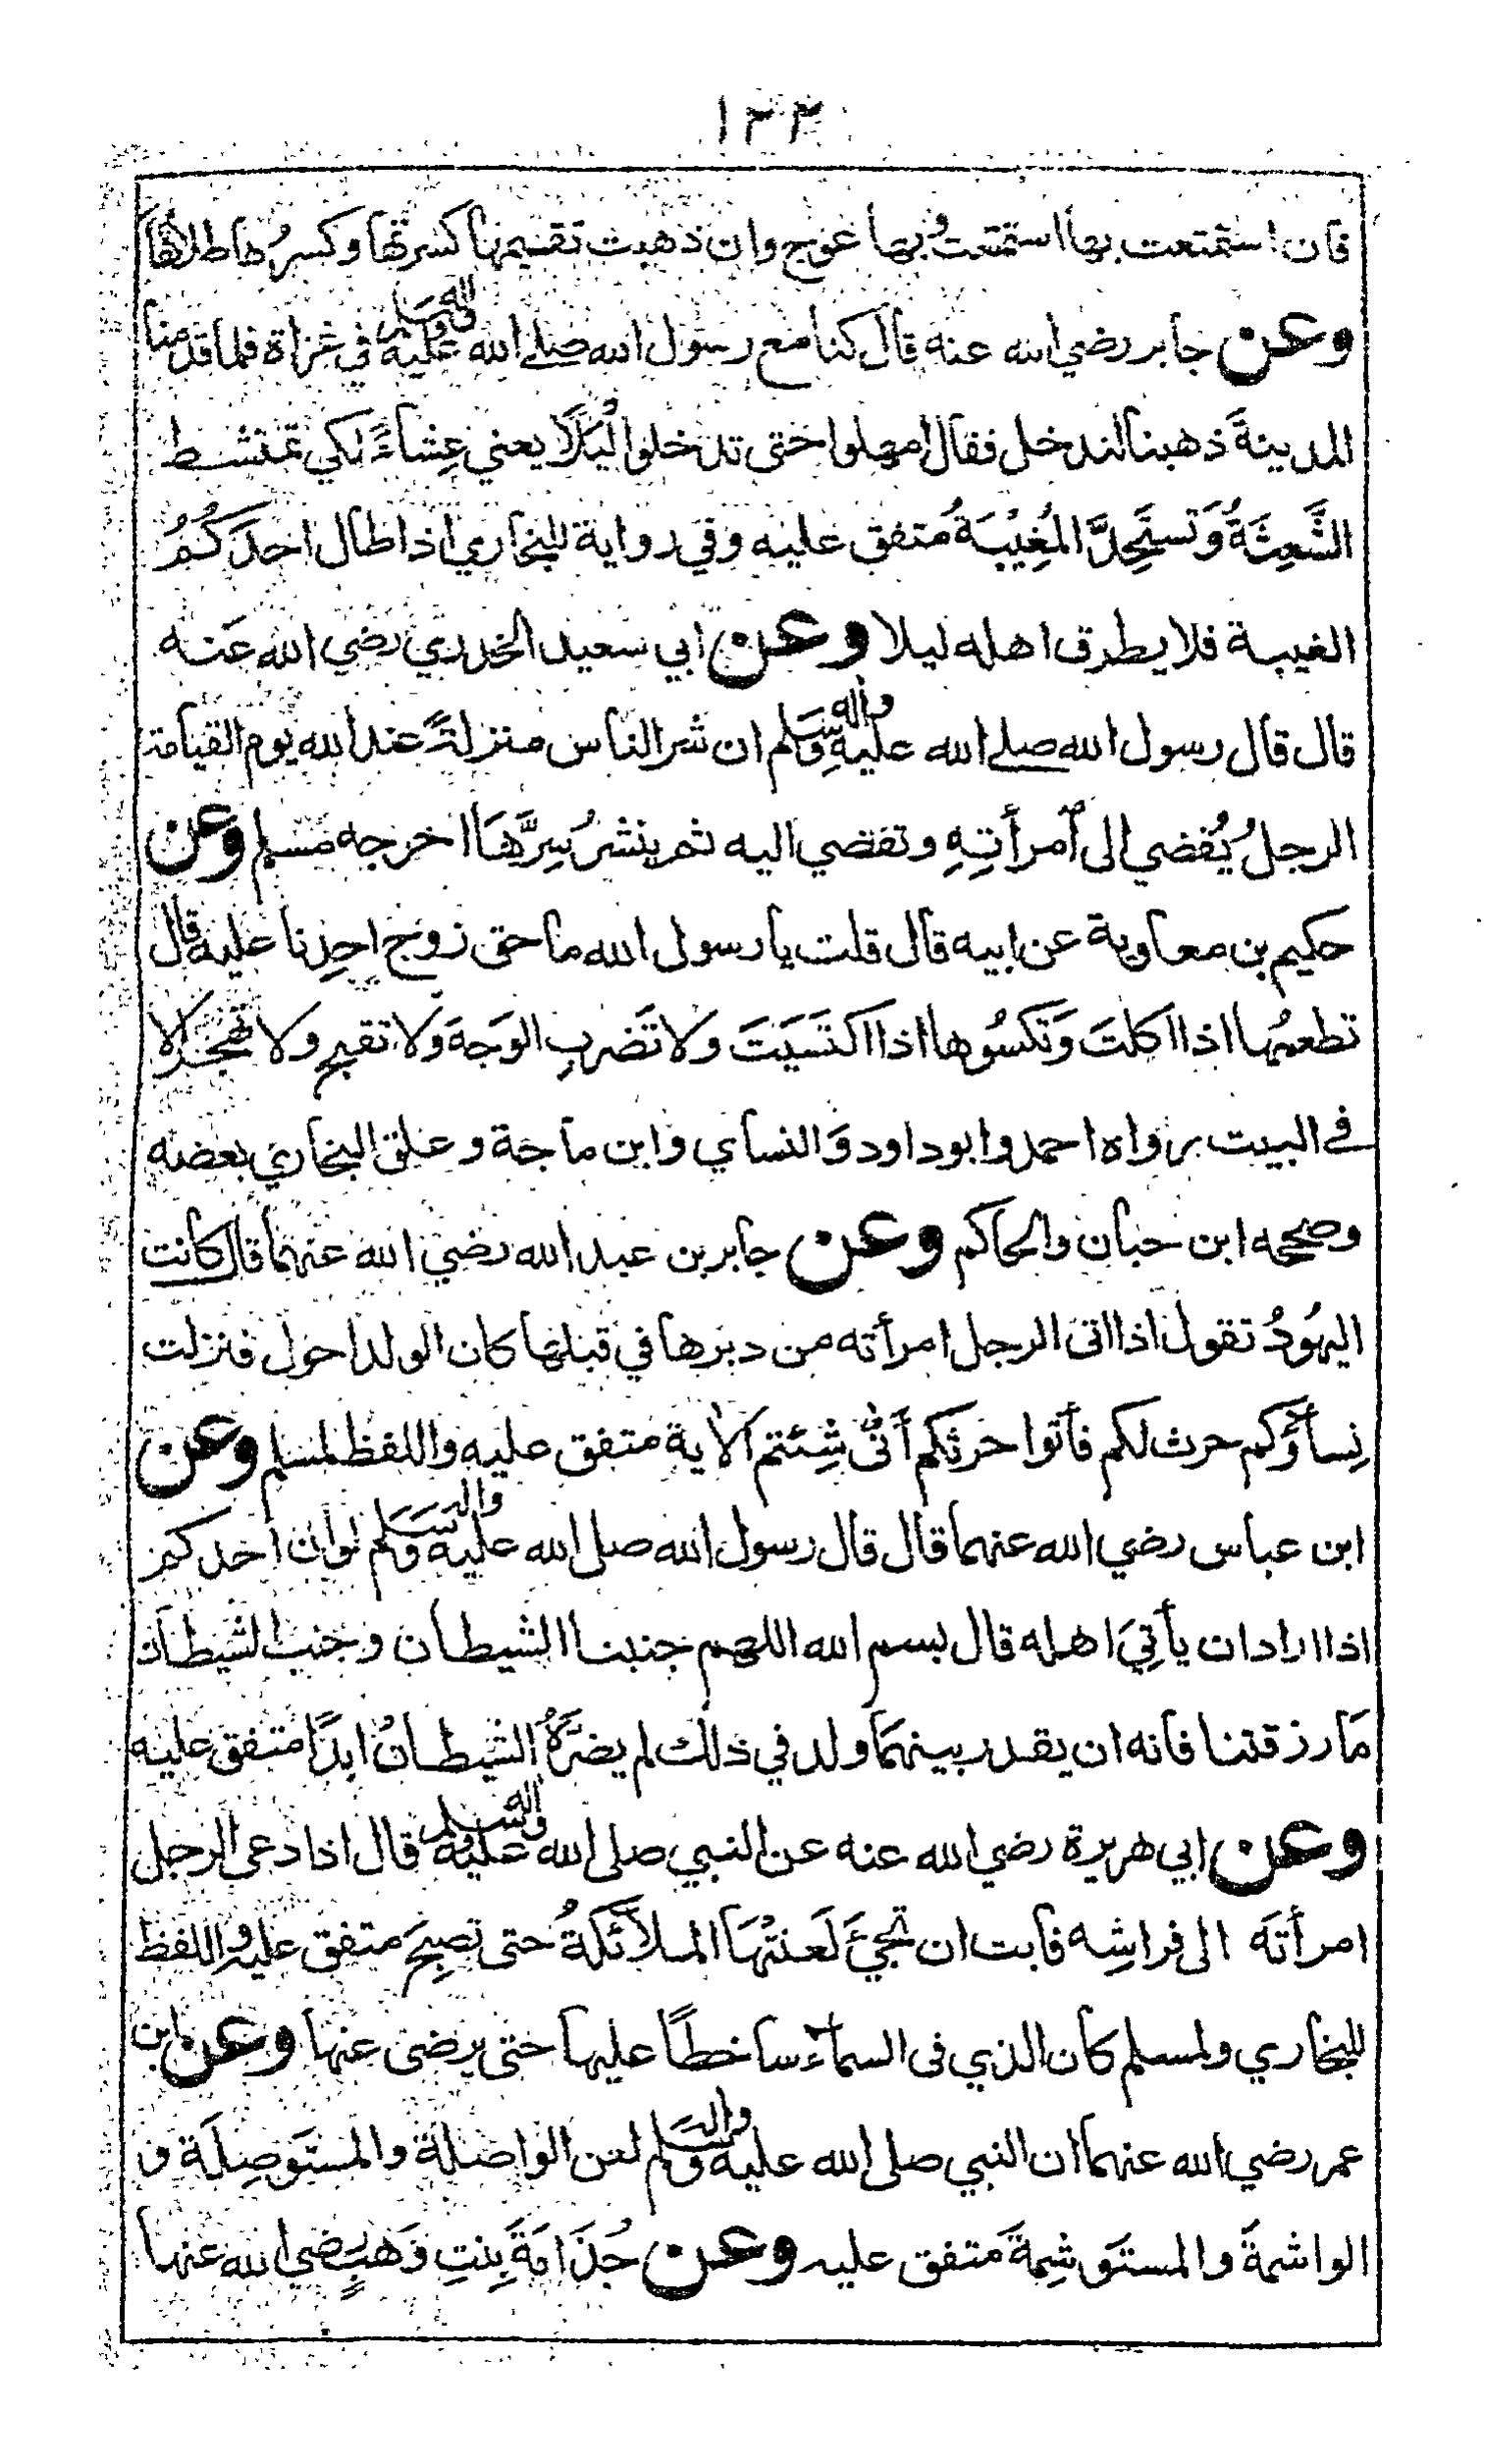 ١٢٢
فان استمتعت بها استمتعتُ بها عوج وان ذهبت تقيمها كسرتها وكسرُها طلاقها
وعن جابر رضي الله عنه قال كنا مع رسول الله صلى الله عليه واله وسلم في غزاة فلما قدمنا
المدينةَ ذهبنا لندخل فقال امهلوا حتى تدخلوا ليلًا يعني عِشاءً لكي تمتشط
الشَّعِثَةُ وَتستَحِدَّ المُغِيْبَةُ متفق عليه وفي رواية للبخاري اذا طال احدَكُمُ
الغيبة فلا يطرق اهله ليلا وعن ابي سعيد الخدري رضي الله عَنه
قال قال رسول الله صلى الله عليه واله وسَلم ان شر الناس منزلةً عند الله يوم القيامة
الرجلُ يُفضي الى امرأتِهِ وتفضي اليه ثم ينشرُ سِرَّهَا اخرجه مسلم وعن
حكيم بن معاوية عن ابيه قال قلت يا رسول الله ما حق زوج احدِنا عليه قال
تطعمُها اذا اكلتَ وَتكسُوها اذا اكتَسَيَتَ ولا تَضربِ الوَجهَ ولا تقبح ولا تهجُر الا
في البيت رواه احمد وابوداود وَالنساي وابن ماجة وعلق البخاري بعضه
وصححه ابن حبان والحاكم وعن جابر بن عبد الله رضي الله عنهما قال كانت
اليهُودُ تقول اذا اتى الرجل امرأته من دبرها في قبلها كان الولد احول فنزلت
نِساؤُكم حرث لكم فأتوا حرثكم أنّٰى شِئتم الاية متفق عليه واللفظ لمسلم وعن
ابن عباس رضي الله عنهما قال قال رسول الله صلى الله عليه واله وسَلم لو ان احدكم
اذا اراد ان يأتِيَ اهله قال بسم الله اللهم جنبنا الشيطان وجنب الشيطان
مَا رزقتنا فانه ان يقدر بينهمَا ولد في ذلك لم يضرَّهُ الشيطانُ ابدًا متفق عليه
وعن ابي هريرة رضي الله عنه عن النبي صلى الله عليه واله وسلم قال اذا دعى الرجل
امرأتَه الى فراشِه فابت ان تجئَ لَعَنَتْهَا الملآئكةُ حتى تصبِحَ متفق عليه واللفظ
للبخاري ولمسلم كان الذي فى السمآء ساخطًا عليها حتى يرضى عنها وعن ابن
عمر رضي الله عنهما ان النبي صلى الله عليه واله وسلم لعن الواصلة والمستَوصِلَة و
الواشمةَ والمستَوشِمةَ متفق عليه وعن جُذَامَةَ بِنتِ وَهبٍ رضي الله عنها